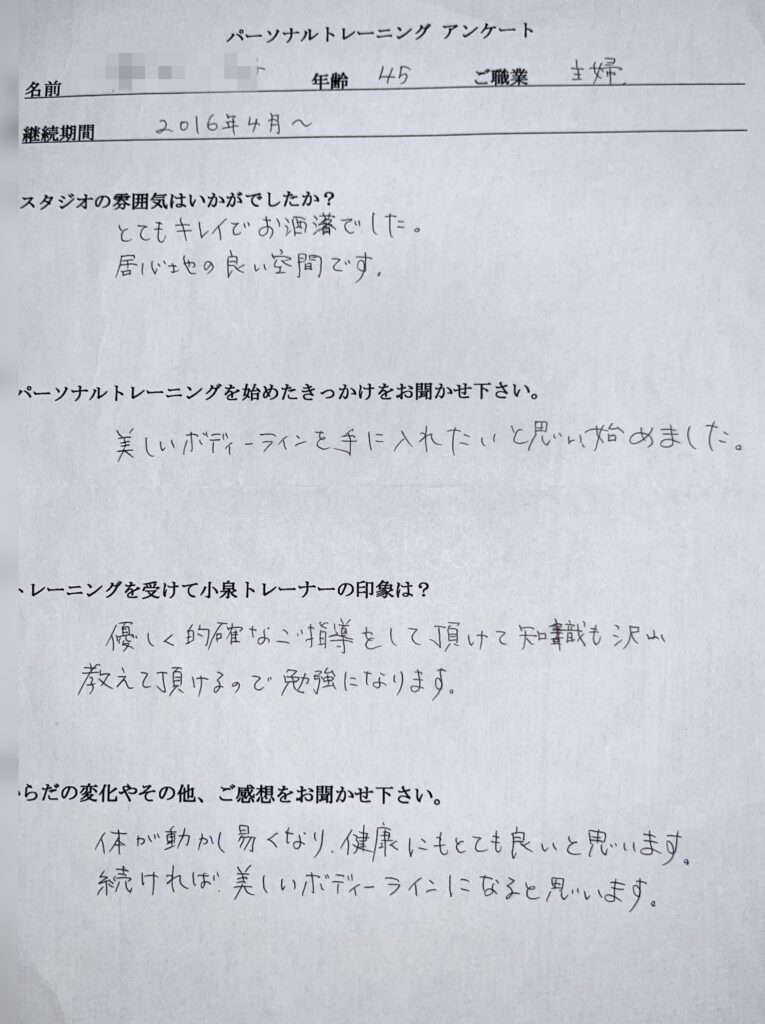 パーソナルトレーニング アンケート
名前 年齢 45 ご職業 主婦
継続期間 2016年4月～
スタジオの雰囲気はいかがでしたか？
とてもキレイでお洒落でした。
居心地の良い空間です。
パーソナルトレーニングを始めたきっかけをお聞かせ下さい。
美しいボディーラインを手に入れたいと思い、始めました。
トレーニングを受けて小泉トレーナーの印象は？
優しく的確なご指導をして頂けて知識も沢山
教えて頂けるので勉強になります。
らだの変化やその他、ご感想をお聞かせ下さい。
体が動かし易くなり、健康にもとても良いと思います。
続ければ、美しいボディーラインになると思います。